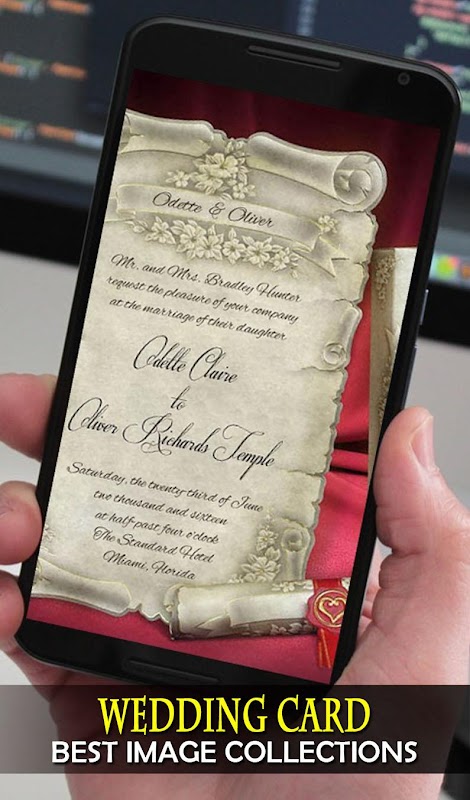 Odette & Oliver
Mr. and Mrs. Bradley Hunter
request the pleasure of your company
at the marriage of their daughter
Odette Claire
to
Oliver Richards Temple
Saturday, the twenty-third of June
two thousand and sixteen
at half-past four o'clock
The Standard Hotel
Miami, Florida
WEDDING CARD
BEST IMAGE COLLECTIONS